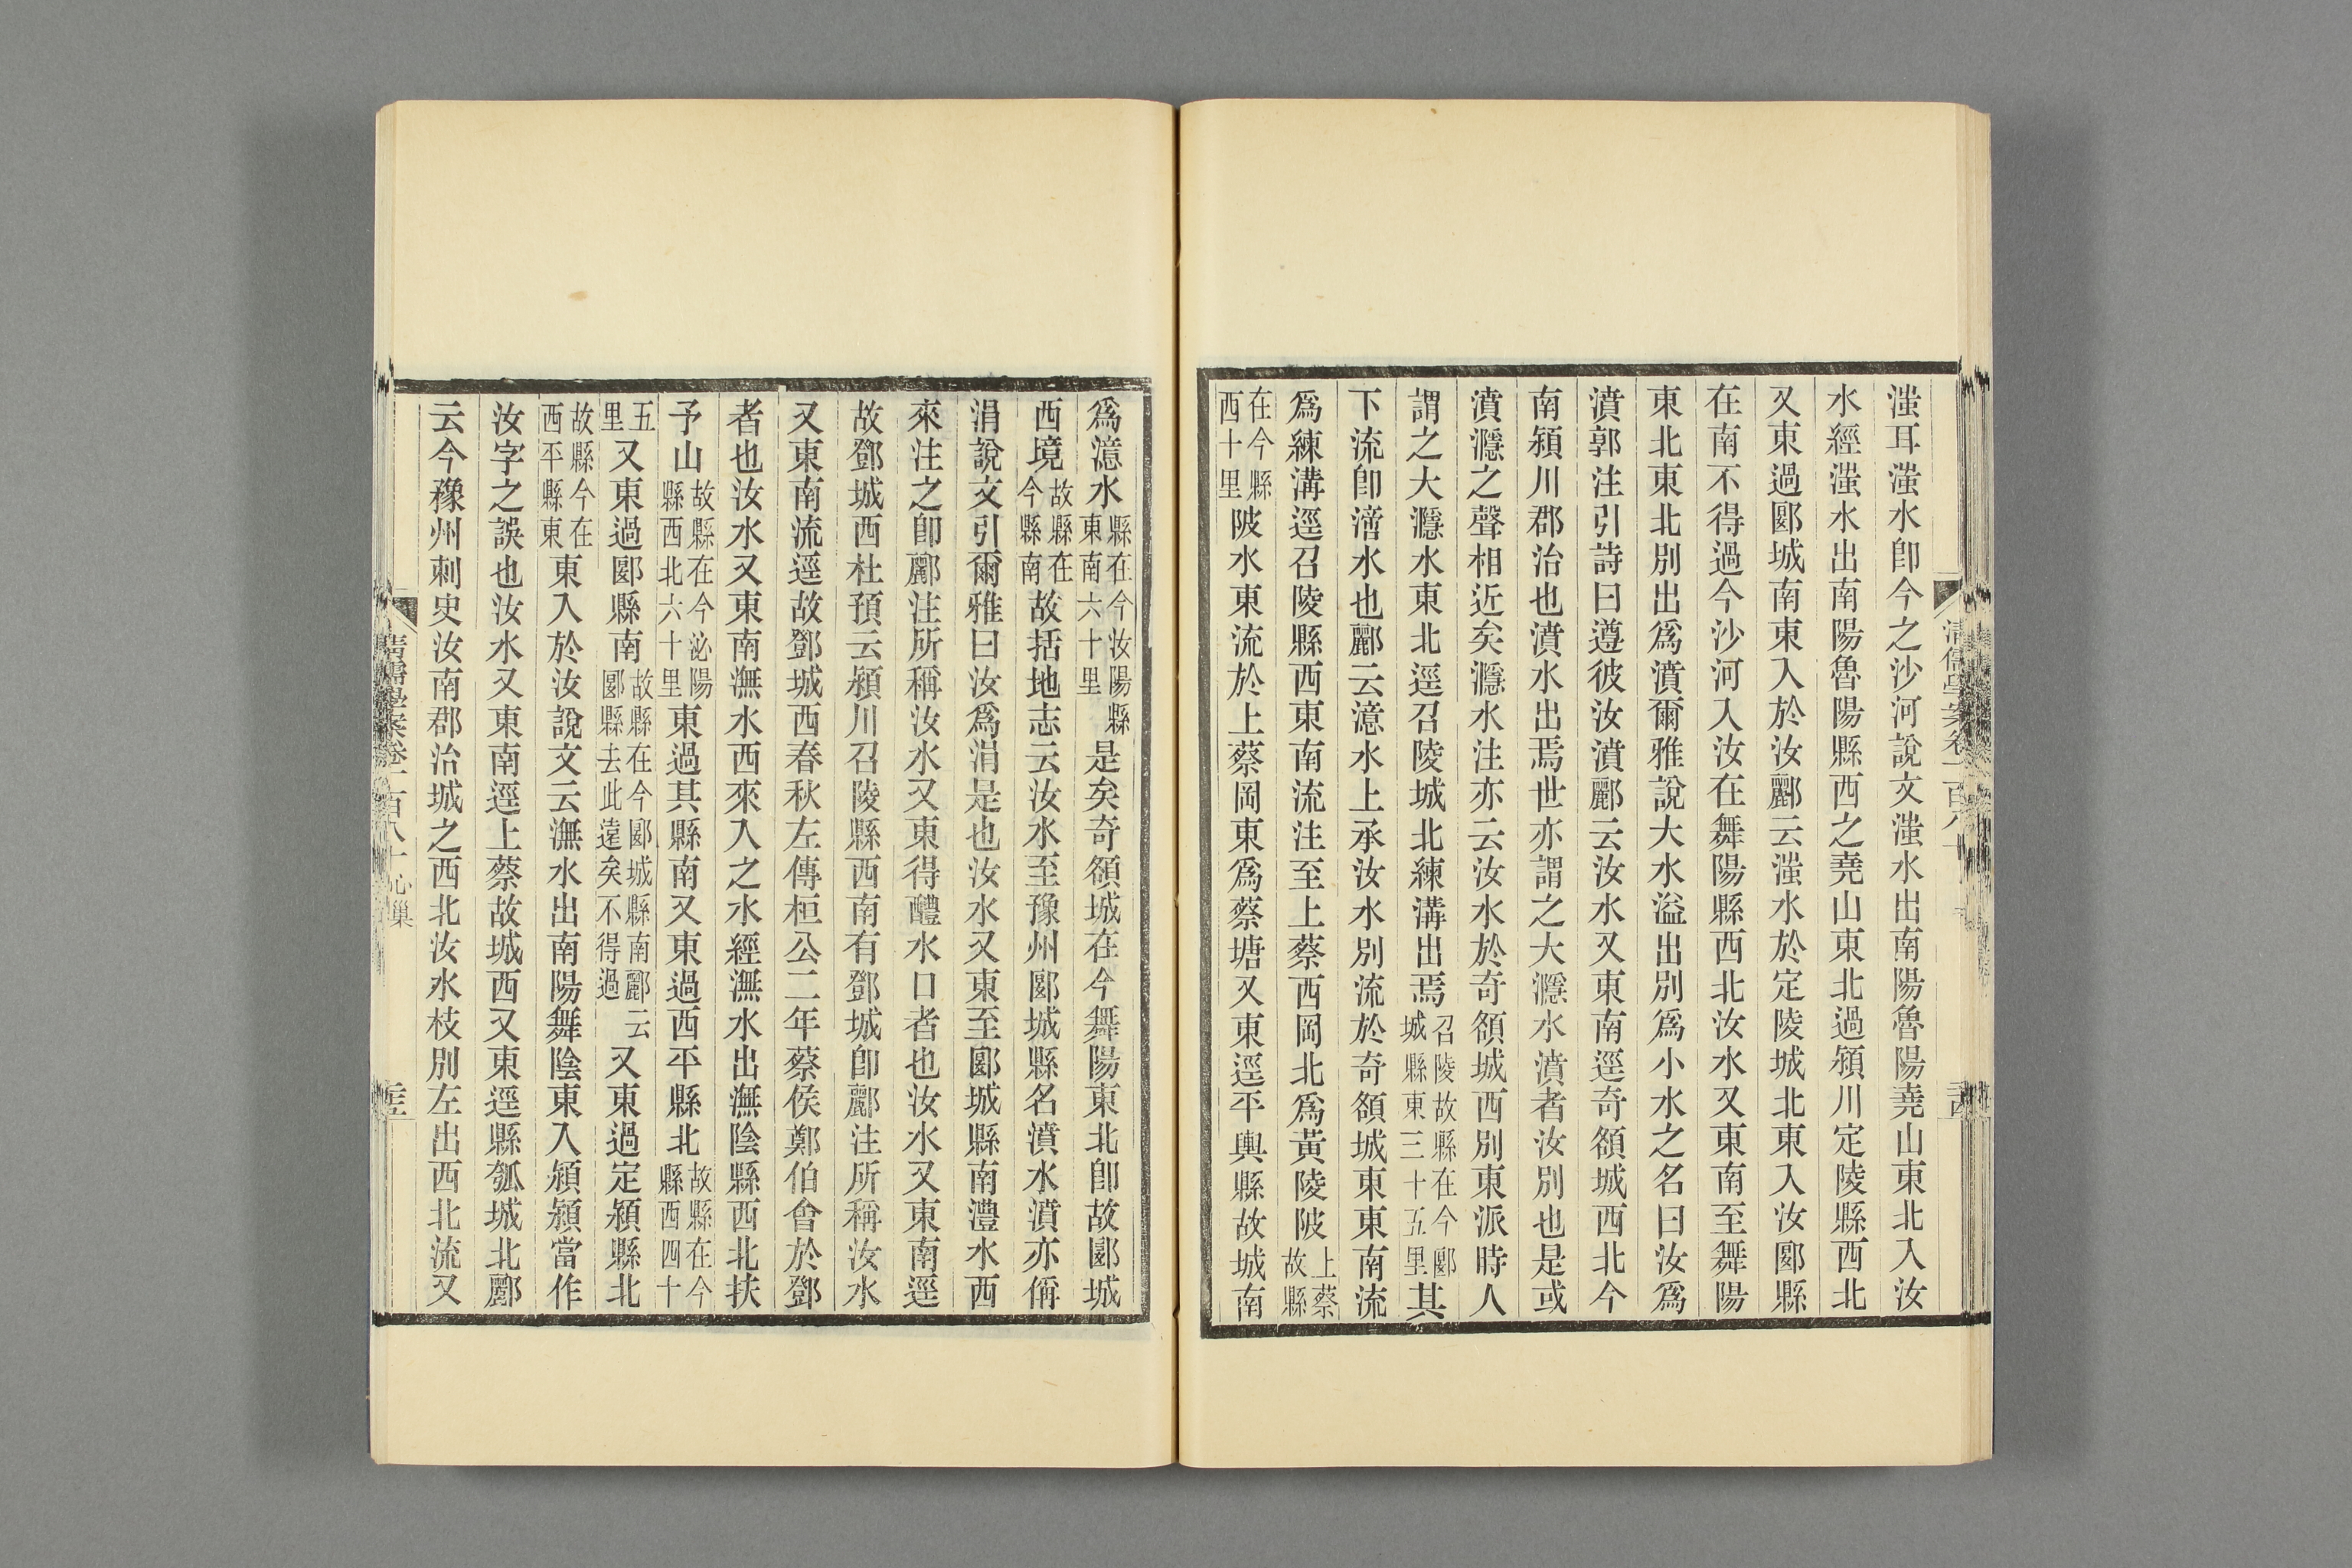 滍耳滍水卽今之沙河說文滍水出南陽魯陽堯山東北入汝
水經滍水出南陽魯陽縣西之堯山東北過潁川定陵縣西北
又東過郾城南東入於汝酈云滍水於定陵城北東入汝郾縣
在南不得過今沙河入汝在舞陽縣西北汝水又東南至舞陽
東北東北別出爲濆爾雅說大水溢出別爲小水之名曰汝爲
濆郭注引詩曰遵彼汝濆酈云汝水又東南逕奇頟城西北今
南潁川郡治也濆水出焉世亦謂之大㶏水濆者汝別也是或
濆㶏之聲相近矣㶏水注亦云汝水於奇頟城西別東派時人
謂之大㶏水東北逕召陵城北練溝出焉召陵故縣在今郾城縣東三十五里其
下流卽濦水也酈云濦水上承汝水別流於奇頟城東東南流
爲練溝逕召陵縣西東南流注至上蔡西岡北爲黃陵陂上蔡故縣
在今縣西十里陂水東流於上蔡岡東爲蔡塘又東逕平輿縣故城南
爲濦水縣在今汝陽縣東南六十里是矣奇頟城在今舞陽東北卽故郾城
西境故縣在今縣南故括地志云汝水至豫州郾城縣名濆水濆亦偁
涓說文引爾雅曰汝爲涓是也汝水又東至郾城縣南澧水西
來注之卽酈注所稱汝水又東得醴水口者也汝水又東南逕
故鄧城西杜預云潁川召陵縣西南有鄧城卽酈注所稱汝水
又東南流逕故鄧城西春秋左傳桓公二年蔡侯鄭伯會於鄧
者也汝水又東南潕水西來入之水經潕水出潕陰縣西北扶
予山故縣在今泌陽縣西北六十里東過其縣南又東過西平縣北故縣在今縣西四十
五里又東過郾縣南故縣在今郾城縣南酈云郾縣去此遠矣不得過又東過定潁縣北
故縣今在西平縣東東入於汝說文云潕水出南陽舞陰東入潁潁當作
汝字之誤也汝水又東南逕上蔡故城西又東逕縣瓠城北酈
云今豫州刺史汝南郡治城之西北汝水枝別左出西北流又